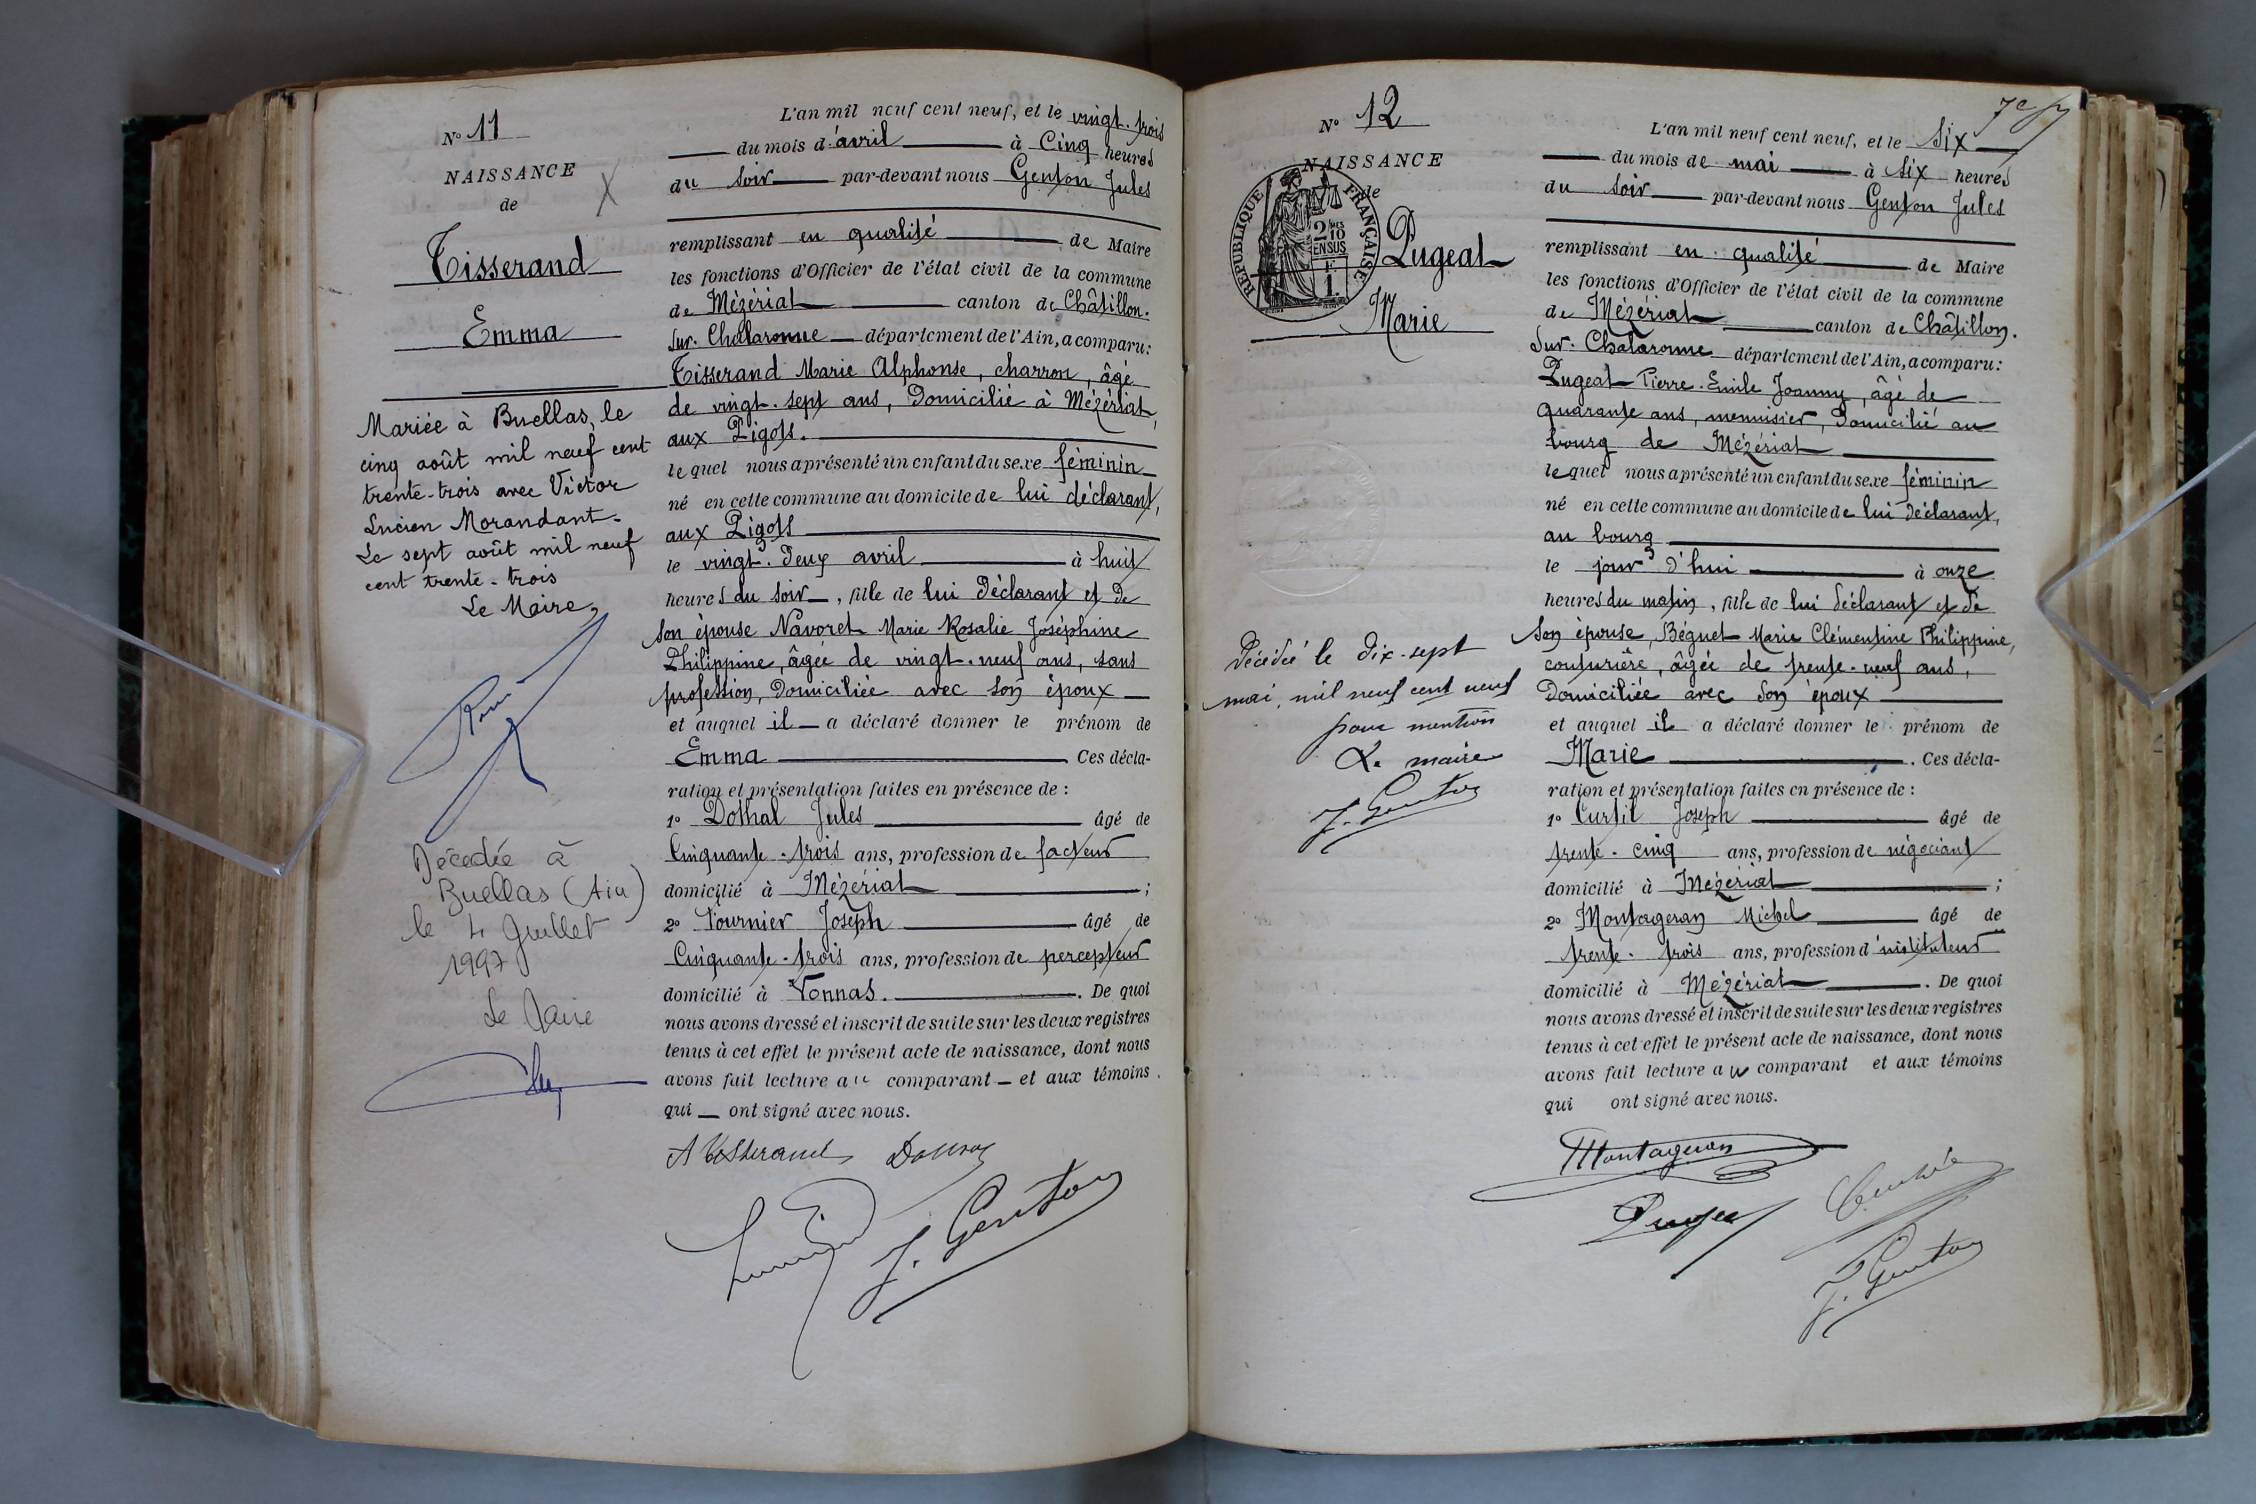 N° 11
NAISSANCE
de
Tisserand
Emma
Mariée à Buellas, le
cinq août mil neuf cent
trente-trois avec Victor
Lucien Morandant.
Le sept août mil neuf
cent trente-trois
Le Maire,
Décédée à
Buellas (Ain)
le 4 Juillet
1997
Le Maire
L'an mil neuf cent neuf, et le vingt-trois
du mois d'avril à Cinq heures
du soir par-devant nous Genton Jules
remplissant en qualité de Maire
les fonctions d'Officier de l'état civil de la commune
de Mézériat canton de Châtillon-
sur-Chalaronne département de l'Ain, a comparu:
Tisserand Marie Alphonse, charron, âgé
de vingt-sept ans, domicilié à Mézériat,
aux Pigots.
lequel nous a présenté un enfant du sexe féminin
né en cette commune au domicile de lui déclarant,
aux Pigots
le vingt-deux avril à huit
heures du soir, fille de lui déclarant et de
son épouse Navoret Marie Rosalie Joséphine
Philippine, âgée de vingt-neuf ans, sans
profession, domiciliée avec son époux
et auquel il a déclaré donner le prénom de
Emma Ces décla-
ration et présentation faites en présence de :
1° Dothal Jules âgé de
Cinquante-trois ans, profession de facteur
domicilié à Mézériat ;
2° Fournier Joseph âgé de
Cinquante-trois ans, profession de percepteur
domicilié à Vonnas. De quoi
nous avons dressé et inscrit de suite sur les deux registres
tenus à cet effet le présent acte de naissance, dont nous
avons fait lecture au comparant et aux témoins.
qui ont signé avec nous.
A Tisserand
J. Genton
7e
N° 12
NAISSANCE
de
RÉPUBLIQUE FRANÇAISE
2/10
EN SUS
1.
Pugeat
Marie
Décédée le dix-sept
mai, mil neuf cent neuf
pour mention
Le maire
J. Genton
L'an mil neuf cent neuf, et le Six
du mois de mai à six heures
du soir par-devant nous Genton Jules
remplissant en qualité de Maire
les fonctions d'Officier de l'état civil de la commune
de Mézériat canton de Châtillon-
sur-Chalaronne département de l'Ain, a comparu:
Pugeat Pierre-Emile Joanny, âgé de
quarante ans, menuisier, domicilié au
bourg de Mézériat
lequel nous a présenté un enfant du sexe féminin
né en cette commune au domicile de lui déclarant,
au bourg
le jour d'hui à onze
heures du matin, fille de lui déclarant et de
son épouse, Béguet Marie Clémentine Philippine,
couturière, âgée de trente-neuf ans,
domiciliée avec son époux
et auquel il a déclaré donner le prénom de
Marie . Ces décla-
ration et présentation faites en présence de :
1° Curtil Joseph âgé de
trente-cinq ans, profession de négociant
domicilié à Mézériat ;
2° Montangeran Michel âgé de
trente-trois ans, profession d'instituteur
domicilié à Mézériat . De quoi
nous avons dressé et inscrit de suite sur les deux registres
tenus à cet effet le présent acte de naissance, dont nous
avons fait lecture au comparant et aux témoins
qui ont signé avec nous.
Pugeat
J. Genton